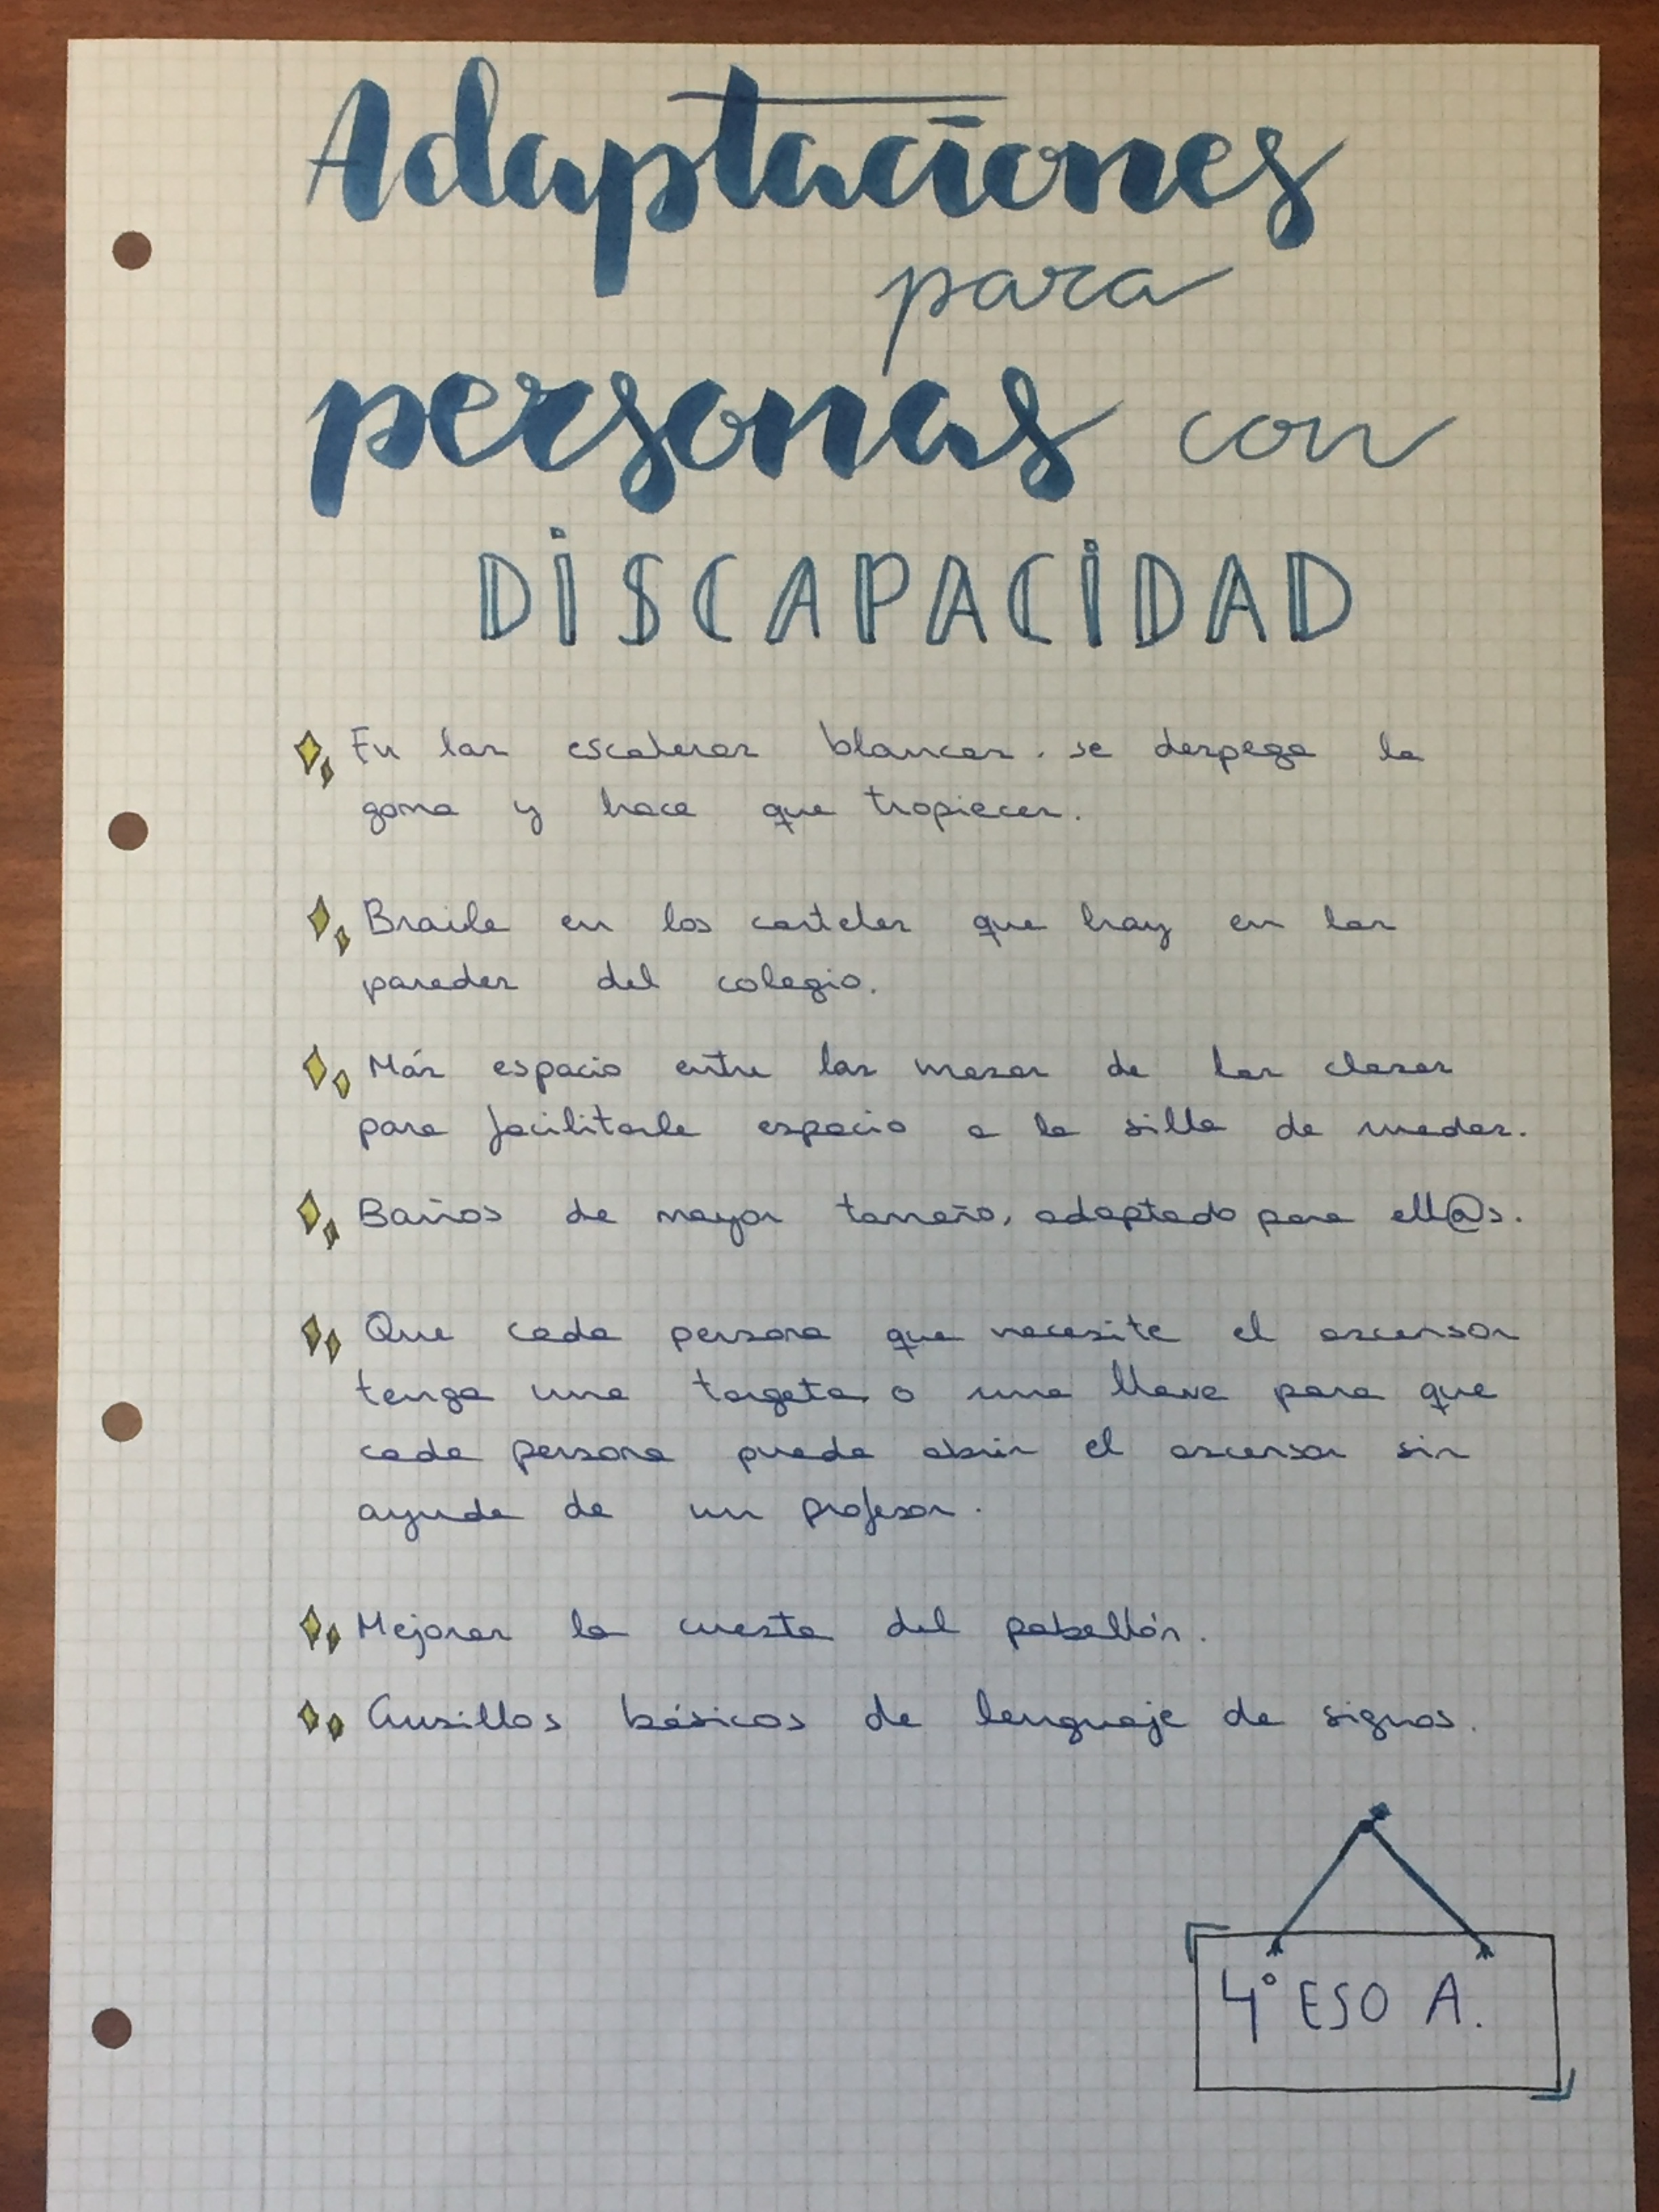 Adaptaciones
para
personas con
DiSCAPACiDAD
En las escaleras blancas. se despega la
goma y hace que tropieces.
Braile en los carteles que hay en las
paredes del colegio.
Más espacio entre las mesas de las clases
para facilitarle espacio a la silla de ruedas.
Baños de mayor tamaño, adaptado para ell@s.
Que cada persona que necesite el ascensor
tenga una targeta o una llave para que
cada persona pueda abrir el ascensor sin
ayuda de un profesor.
Mejorar la cuesta del pabellón.
Cursillos básicos de lenguaje de signos.
4º ESO A.